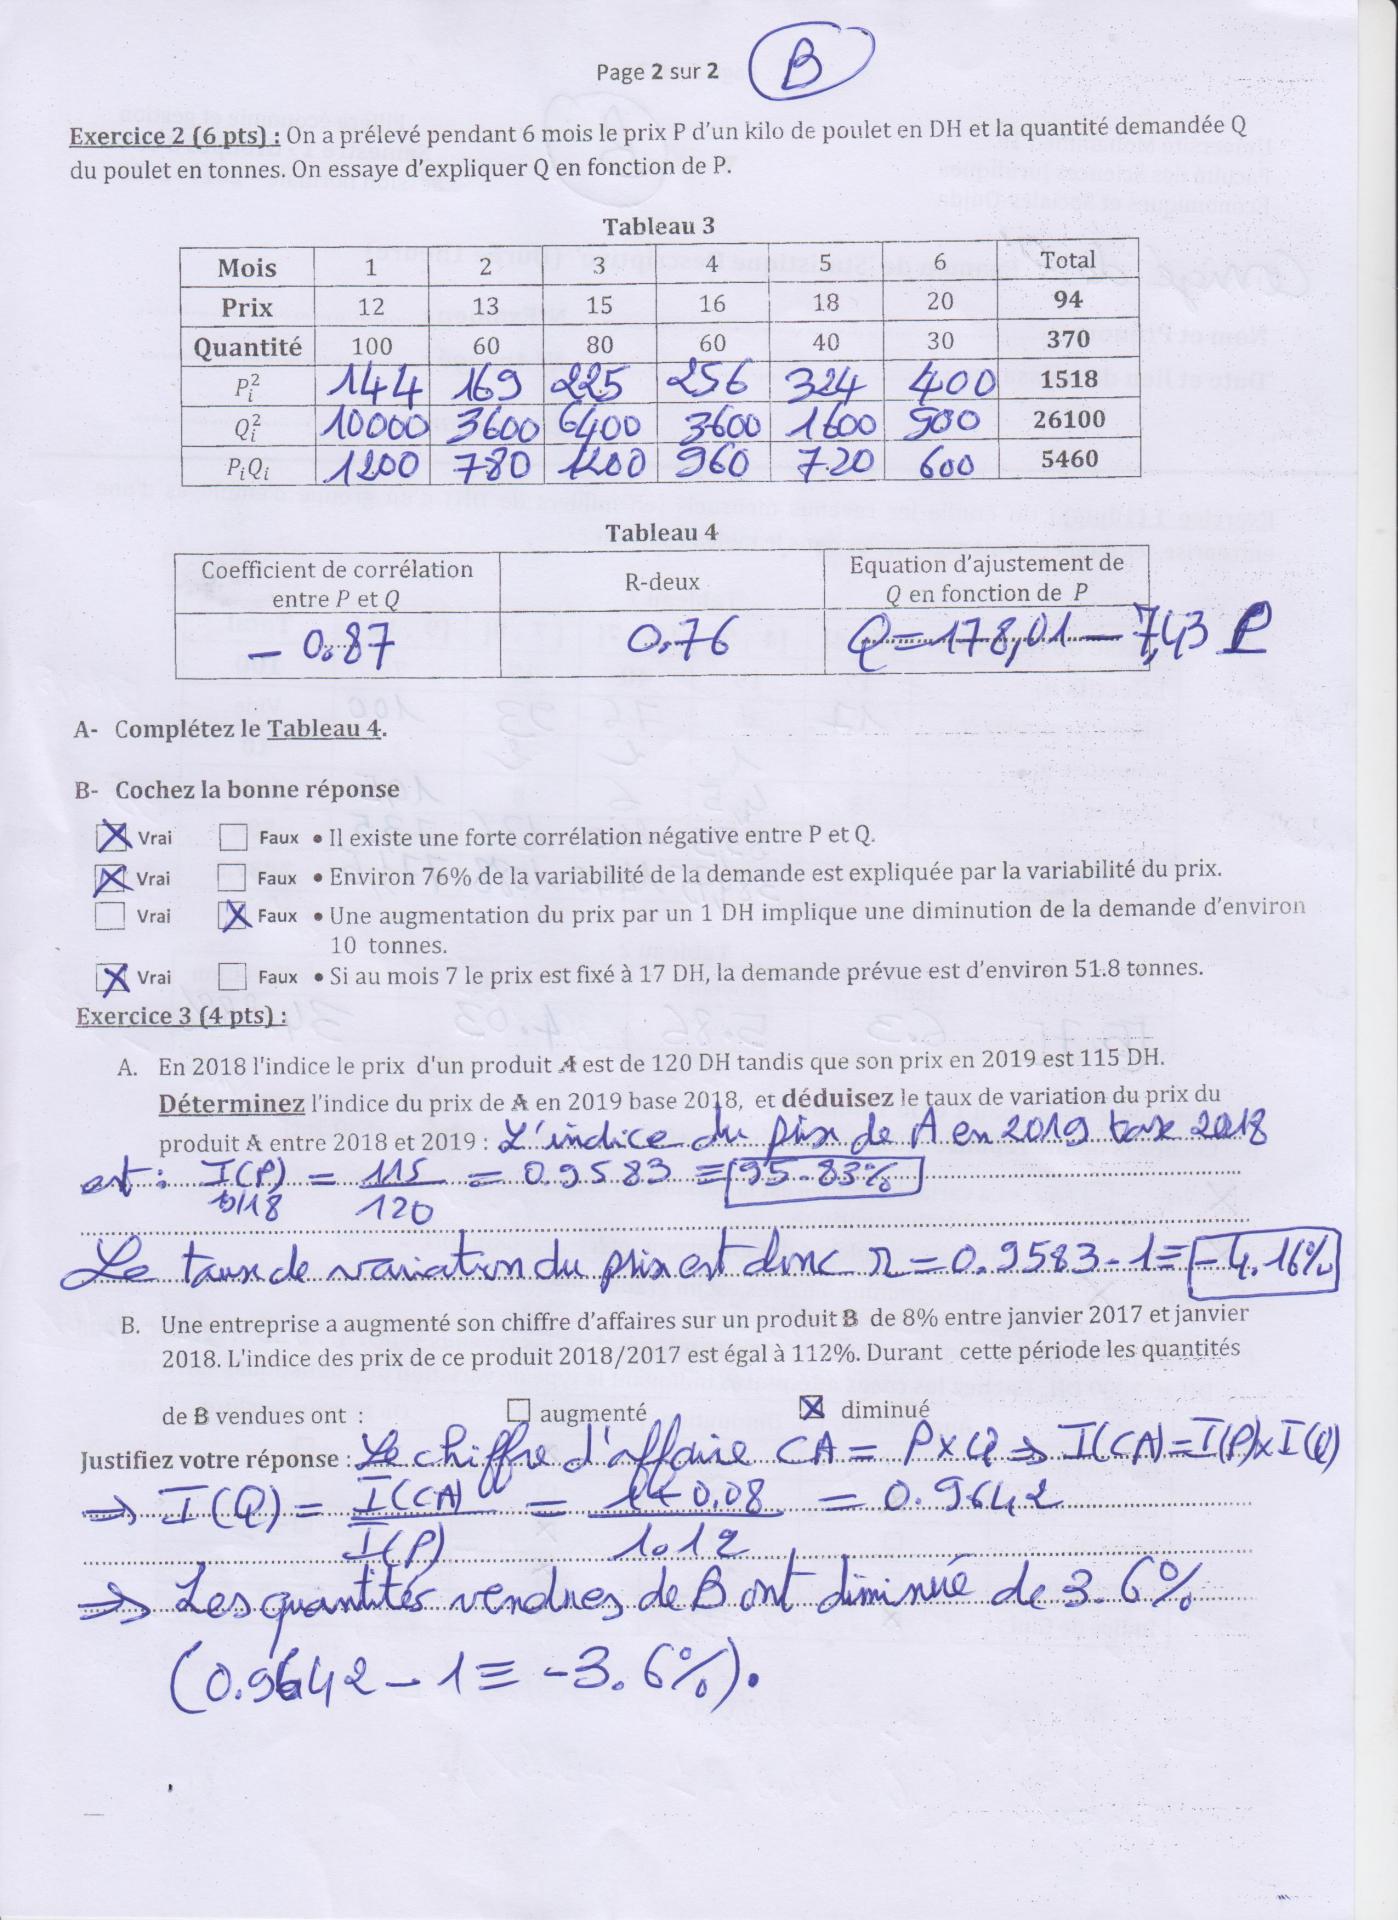 Page 2 sur 2
B
Exercice 2 (6 pts) : On a prélevé pendant 6 mois le prix P d'un kilo de poulet en DH et la quantité demandée Q
du poulet en tonnes. On essaye d'expliquer Q en fonction de P.
Tableau 3
Mois 1 2 3 4 5 6 Total
Prix 12 13 15 16 18 20 94
Quantité 100 60 80 60 40 30 370
P_i^2 144 169 225 256 324 400 1518
Q_i^2 10000 3600 6400 3600 1600 900 26100
P_iQ_i 1200 780 1200 960 720 600 5460
Tableau 4
Coefficient de corrélation entre P et Q R-deux Equation d'ajustement de Q en fonction de P
- 0.87 0.76 Q = 178,01 - 7,43 P
A- Complétez le Tableau 4.
B- Cochez la bonne réponse
☒ Vrai ☐ Faux • Il existe une forte corrélation négative entre P et Q.
☒ Vrai ☐ Faux • Environ 76% de la variabilité de la demande est expliquée par la variabilité du prix.
☐ Vrai ☒ Faux • Une augmentation du prix par un 1 DH implique une diminution de la demande d'environ
10 tonnes.
☒ Vrai ☐ Faux • Si au mois 7 le prix est fixé à 17 DH, la demande prévue est d'environ 51.8 tonnes.
Exercice 3 (4 pts) :
A. En 2018 l'indice le prix d'un produit A est de 120 DH tandis que son prix en 2019 est 115 DH.
Déterminez l'indice du prix de A en 2019 base 2018, et déduisez le taux de variation du prix du
produit A entre 2018 et 2019 : L'indice du prix de A en 2019 base 2018
est : I(P) 19/18 = 115/120 = 0.9583 = 95.83%
Le taux de variation du prix est donc r = 0.9583 - 1 = - 4.16%
B. Une entreprise a augmenté son chiffre d'affaires sur un produit B de 8% entre janvier 2017 et janvier
2018. L'indice des prix de ce produit 2018/2017 est égal à 112%. Durant cette période les quantités
de B vendues ont : ☐ augmenté ☒ diminué
Justifiez votre réponse : Le chiffre d'affaire CA = P x Q ⇒ I(CA) = I(P) x I(Q)
⇒ I(Q) = I(CA)/I(P) = 1+0,08/1.12 = 0.9642
⇒ Les quantités vendues de B ont diminué de 3.6%
(0.9642 - 1 = -3.6%).